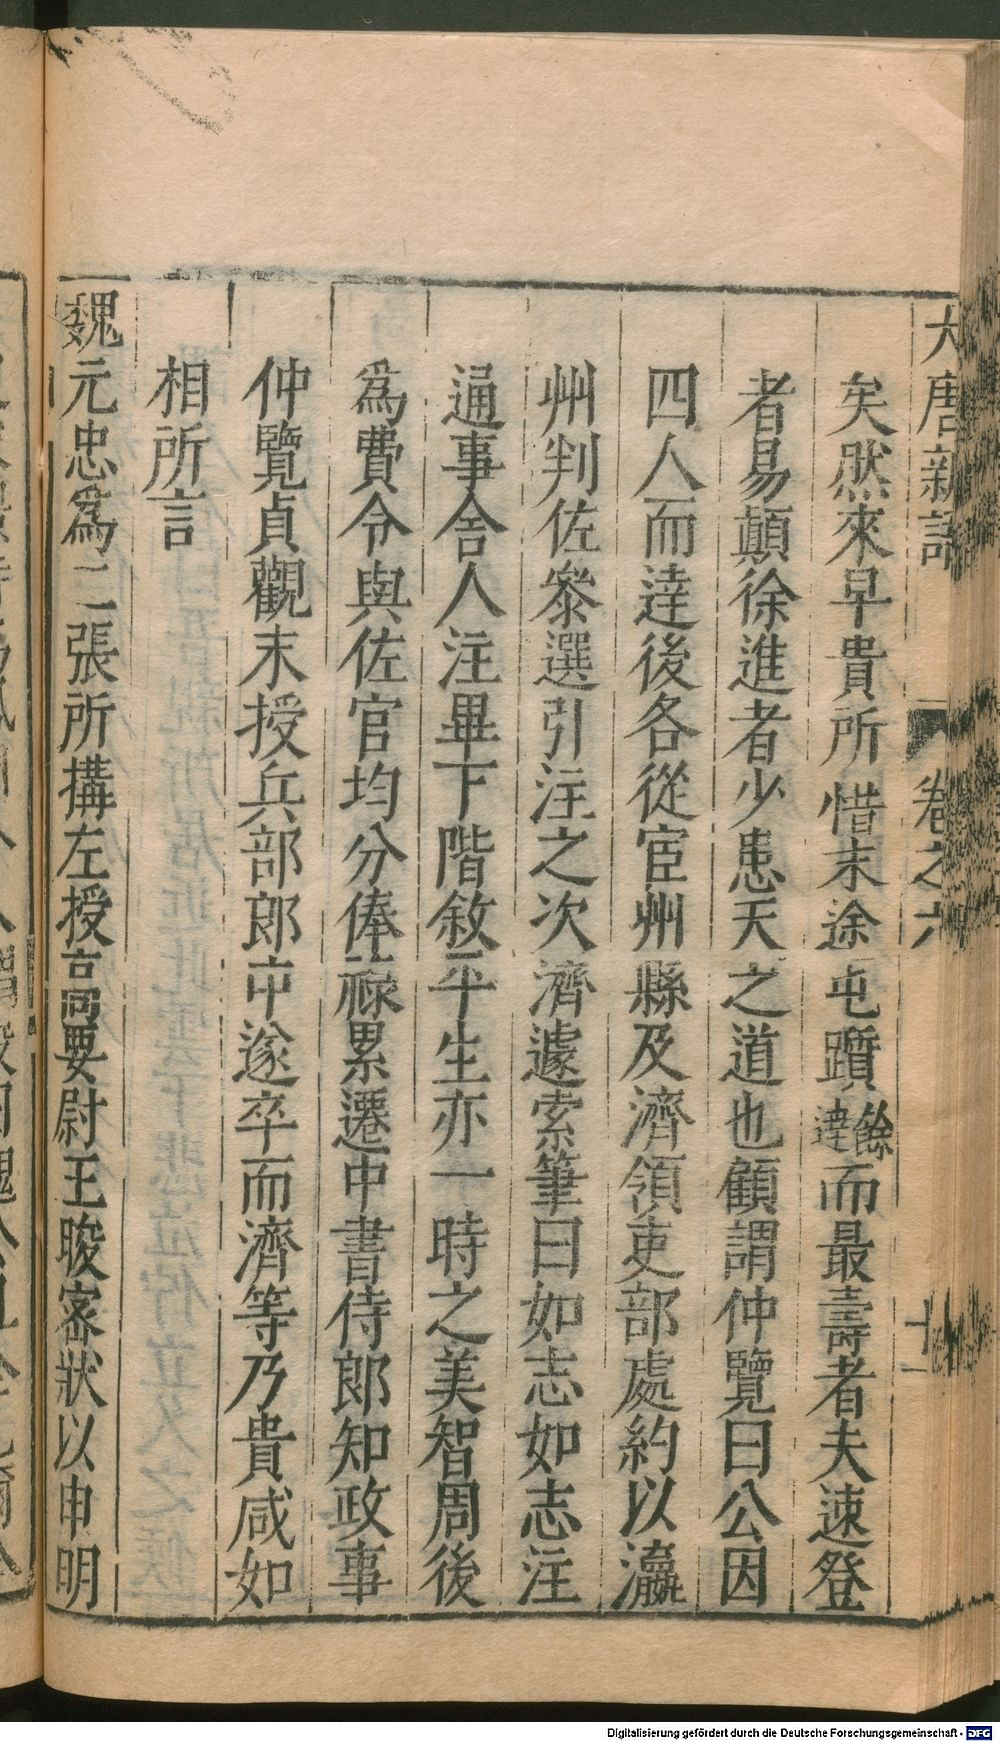 大唐新語 卷之六 十一
矣然來早貴所惜末途屯躓餘達而最壽者夫速登
者易顛徐進者少患天之道也顧謂仲覽曰公因
四人而達後各從宦州縣及濟領吏部處約以瀛
州判佐叅選引注之次濟遽索筆曰如志如志注
通事舍人注畢下階敘平生亦一時之美智周後
爲費令與佐官均分俸祿累遷中書侍郎知政事
仲覽貞觀末授兵部郎中遂卒而濟等乃貴咸如
相所言
魏元忠爲二張所搆左授高要尉王晙密狀以申明
Digitalisierung gefördert durch die Deutsche Forschungsgemeinschaft - DFG